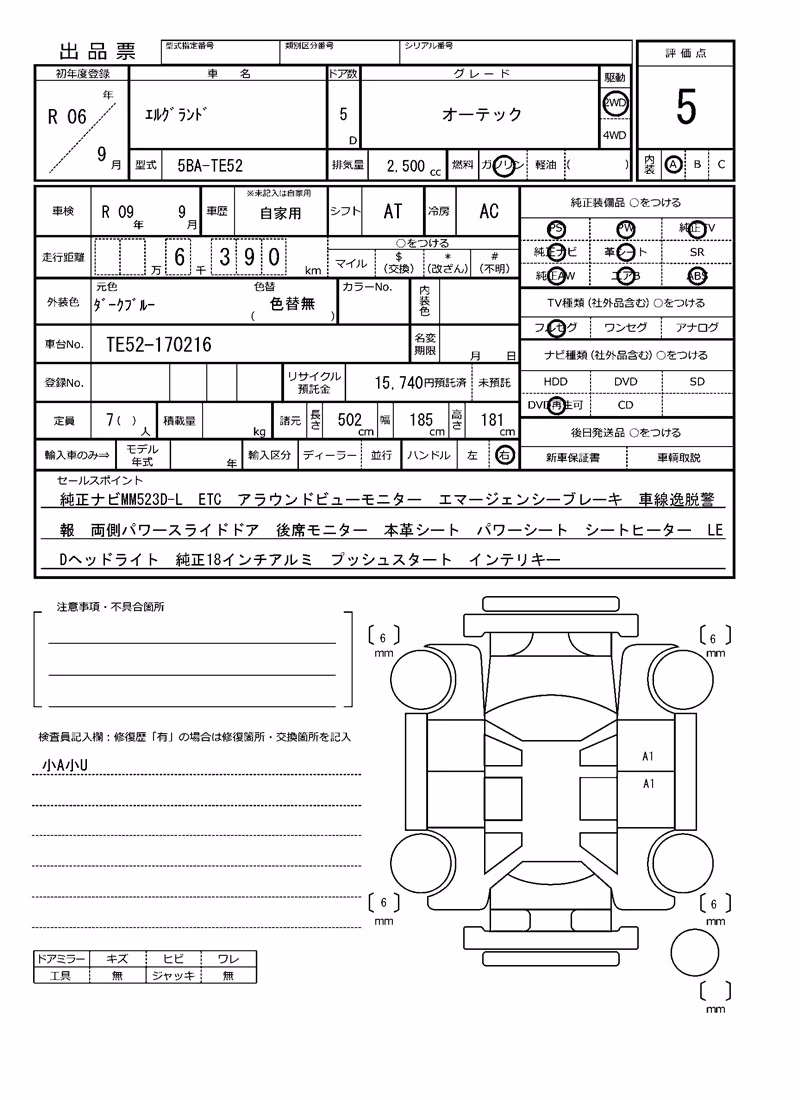 出品票
型式指定番号 類別区分番号 シリアル番号
評価点
初年度登録 車名 ドア数 グレード 駆動
R 06 年 エルグランド 5 D オーテック 2WD
5
9 月 4WD
型式 5BA-TE52 排気量 2,500 cc 燃料 ガソリン 軽油 ( ) 内装 A B C
車検 R 09 年 9 月 車歴 ※未記入は自家用 自家用 シフト AT 冷房 AC
純正装備品 ○をつける
PS PW 純正TV
純正ナビ 革シート SR
純正AW エアB ABS
走行距離 万 6 千 3 9 0 km
○をつける
マイル $(交換) *(改ざん) #(不明)
外装色 元色 ダークブルー 色替 ( 色替無 ) カラーNo. 内装色
TV種類(社外品含む)○をつける
フルセグ ワンセグ アナログ
車台No. TE52-170216 名変期限 月 日
ナビ種類(社外品含む)○をつける
HDD DVD SD
DVD再生可 CD
登録No. リサイクル預託金 15,740円預託済 未預託
定員 7( )人 積載量 kg 諸元 長さ 502 cm 幅 185 cm 高さ 181 cm
後日発送品 ○をつける
新車保証書 車輌取説
輸入車のみ⇒ モデル年式 年 輸入区分 ディーラー 並行 ハンドル 左 右
セールスポイント
純正ナビMM523D-L ETC アラウンドビューモニター エマージェンシーブレーキ 車線逸脱警
報 両側パワースライドドア 後席モニター 本革シート パワーシート シートヒーター LE
Dヘッドライト 純正18インチアルミ プッシュスタート インテリキー
注意事項・不具合箇所
6 mm
6 mm
検査員記入欄：修復歴「有」の場合は修復箇所・交換箇所を記入
小A小U
A1
A1
6 mm
6 mm
ドアミラー キズ ヒビ ワレ
工具 無 ジャッキ 無
mm